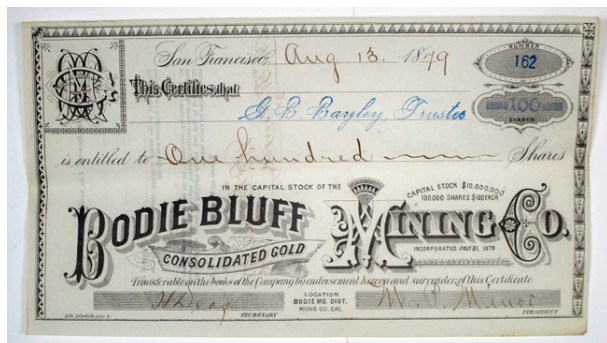 San Francisco, Aug 13. 1879
NUMBER
162
This Certifies that
100
SHARES
G. B. Bayley, Trustee
is entitled to One hundred Shares
IN THE CAPITAL STOCK OF THE
CAPITAL STOCK $10,000,000
100,000 SHARES $100 EACH
BODIE BLUFF
CONSOLIDATED GOLD
MINING CO.
INCORPORATED JULY 31, 1879
Transferable on the books of the Company by endorsement hereon and surrender of this Certificate.
LOCATION
BODIE MG. DIST.
MONO CO. CAL.
SECRETARY
PRESIDENT